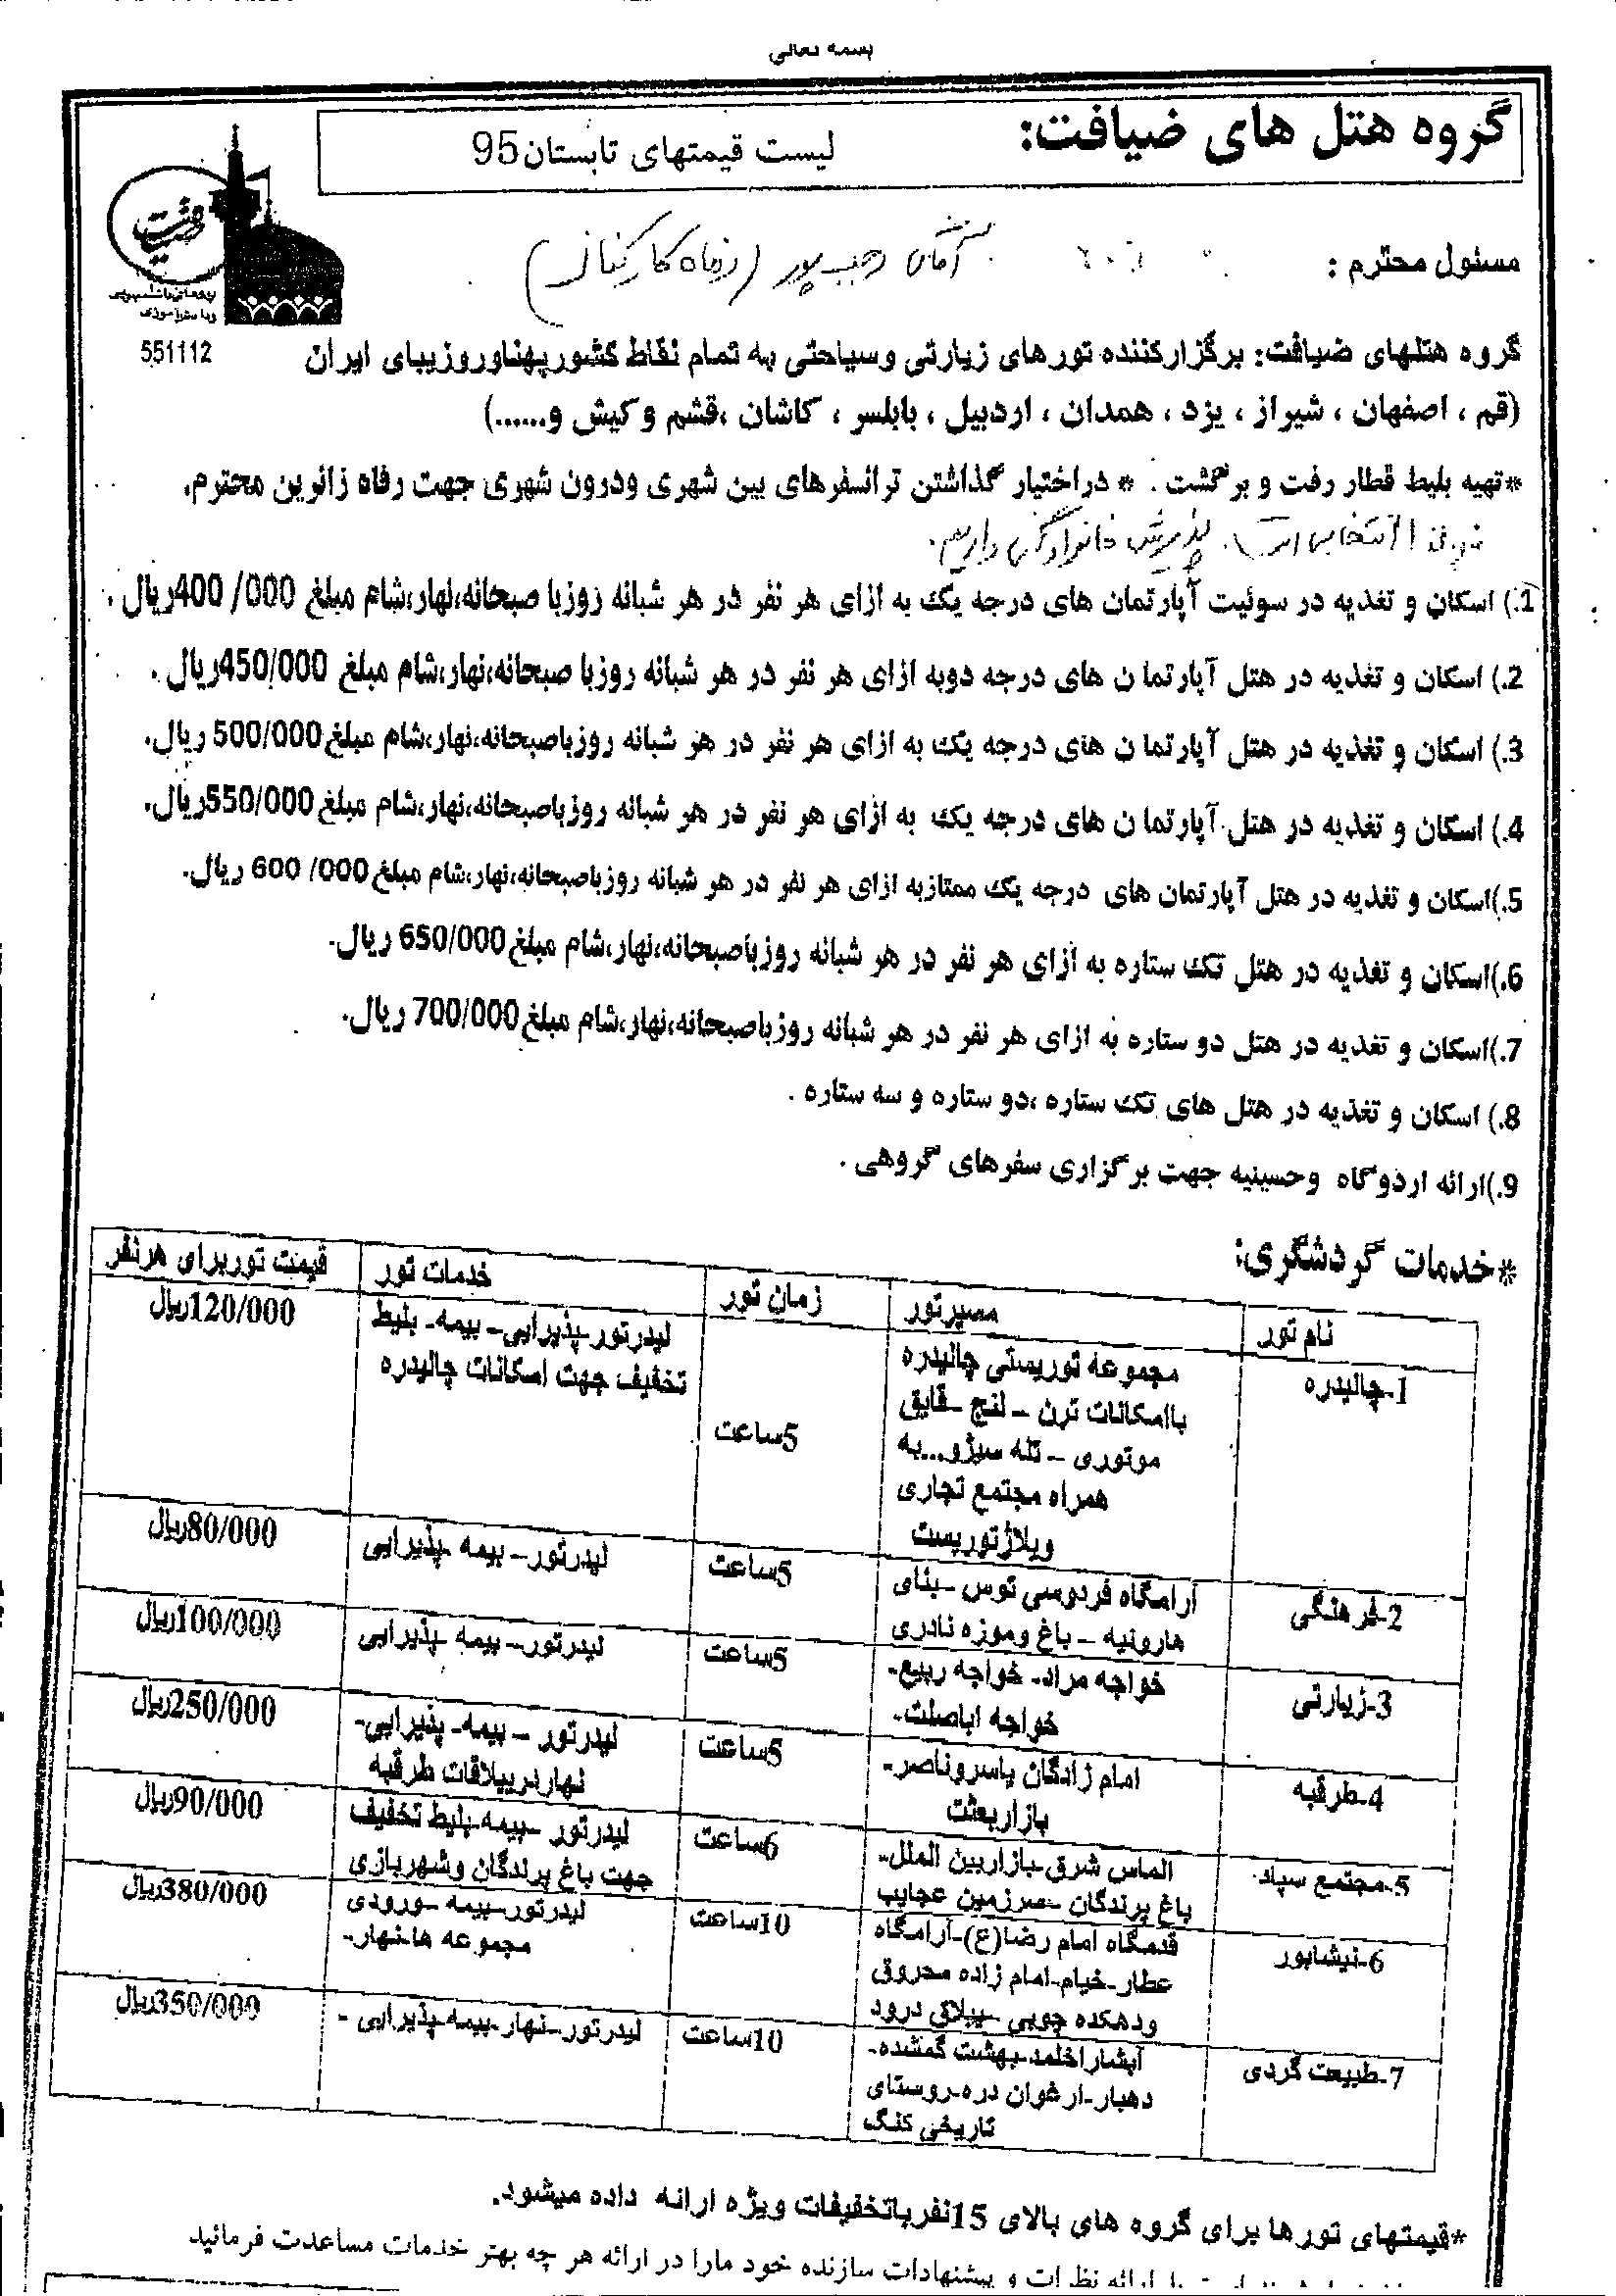 بسمه تعالی
گروه هتل های ضیافت:
لیست قیمتهای تابستان95
ضیافت
551112
مسئول محترم :
آقای رجب پور (رفاه کارکنان)
گروه هتلهای ضیافت: برگزارکننده تورهای زیارتی وسیاحتی به تمام نقاط کشورپهناوروزیبای ایران
(قم ، اصفهان ، شیراز ، یزد ، همدان ، اردبیل ، بابلسر ، کاشان ،قشم و کیش و......)
*تهیه بلیط قطار رفت و برگشت . * دراختیار گذاشتن ترانسفرهای بین شهری ودرون شهری جهت رفاه زائرین محترم.
پذیرش خانوادگی داریم.
1.) اسکان و تغذیه در سوئیت آپارتمان های درجه یک به ازای هر نفر در هر شبانه روزبا صبحانه،نهار،شام مبلغ 000/ 400ریال .
2.) اسکان و تغذیه در هتل آپارتما ن های درجه دوبه ازای هر نفر در هر شبانه روزبا صبحانه،نهار،شام مبلغ 450/000ریال .
3.) اسکان و تغذیه در هتل آپارتما ن های درجه یک به ازای هر نفر در هر شبانه روزباصبحانه،نهار،شام مبلغ500/000 ریال.
4.) اسکان و تغذیه در هتل آپارتما ن های درجه یک به ازای هر نفر در هر شبانه روزباصبحانه،نهار،شام مبلغ550/000ریال.
5.)اسکان و تغذیه در هتل آپارتمان های درجه یک ممتازبه ازای هر نفر در هر شبانه روزباصبحانه،نهار،شام مبلغ000/ 600 ریال.
6.)اسکان و تغذیه در هتل تک ستاره به ازای هر نفر در هر شبانه روزباصبحانه،نهار،شام مبلغ650/000 ریال.
7.)اسکان و تغذیه در هتل دو ستاره به ازای هر نفر در هر شبانه روزباصبحانه،نهار،شام مبلغ700/000 ریال.
8.) اسکان و تغذیه در هتل های تک ستاره ،دو ستاره و سه ستاره .
9.)ارائه اردوگاه وحسینیه جهت برگزاری سفرهای گروهی .
*خدمات گردشگری:
نام تور مسیرتور زمان تور خدمات تور قیمت توربرای هرنفر
1-چالیدره
مجموعه توریستی چالیدره
باامکانات ترن – لنج –قایق
موتوری – تله سیژو...به
همراه مجتمع تجاری
ویلاژتوریست
5ساعت
لیدرتور–پذیرایی– بیمه- بلیط
تخفیف جهت امکانات چالیدره
120/000ریال
2-فرهنگی
آرامگاه فردوسی توس –بنای
هارونیه – باغ وموزه نادری
5ساعت
لیدرتور– بیمه –پذیرایی
80/000ریال
3-زیارتی
خواجه مراد- خواجه ربیع-
خواجه اباصلت-
5ساعت
لیدرتور– بیمه –پذیرایی
100/000ریال
4-طرقبه
امام زادگان یاسروناصر-
بازاربعثت
5ساعت
لیدرتور – بیمه- پذیرایی-
نهاردرییلاقات طرقبه
250/000ریال
5-مجتمع سپاد
الماس شرق-بازاربین الملل-
باغ پرندگان –سرزمین عجایب
6ساعت
لیدرتور –بیمه-بلیط تخفیف
جهت باغ پرندگان وشهربازی
90/000ریال
6-نیشابور
قدمگاه امام رضا(ع)-آرامگاه
عطار-خیام-امام زاده محروق
ودهکده چوبی –ییلاق درود
10ساعت
لیدرتور–بیمه –ورودی
مجموعه ها-نهار-
380/000ریال
7-طبیعت گردی
آبشاراخلمد-بهشت گمشده-
دهبار-ارغوان دره-روستای
تاریخی کنگ
10ساعت
لیدرتور–نهار-بیمه-پذیرایی -
350/000ریال
*قیمتهای تورها برای گروه های بالای 15نفرباتخفیفات ویژه ارائه داده میشود.
ارائه نظرات و پیشنهادات سازنده خود مارا در ارائه هر چه بهتر خدمات مساعدت فرمائید